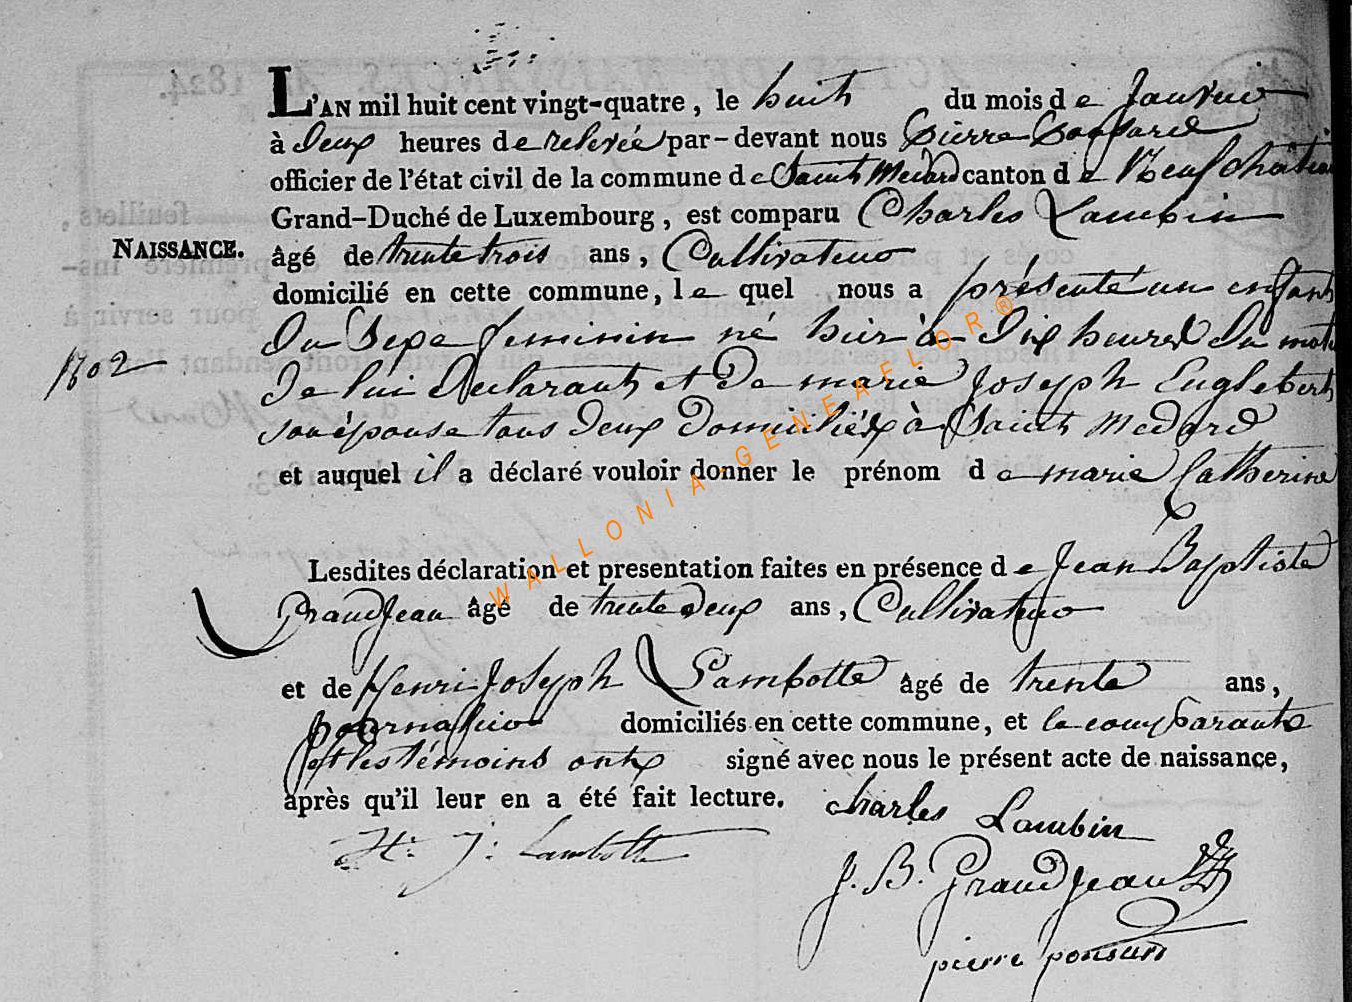 L'AN mil huit cent vingt-quatre, le huit du mois de Janvier
à deux heures de relevée par-devant nous Pierre Ponsard
officier de l'état civil de la commune de Saint Medard canton de Neufchâteau
Grand-Duché de Luxembourg, est comparu Charles Lambin
NAISSANCE. âgé de trente trois ans, Cultivateur
domicilié en cette commune, le quel nous a présenté un enfant
du Sexe feminin né hier à dix heures du matin
1802
de lui declarant et de marie Joseph Englebert
son épouse tous deux domiciliés à Saint Medard
et auquel il a déclaré vouloir donner le prénom de marie Catherine
Lesdites déclaration et presentation faites en présence de Jean Baptiste
GrandJean âgé de trente deux ans, Cultivateur
et de Henri Joseph Lambotte âgé de trente ans,
journalier domiciliés en cette commune, et le comparant
et les témoins ont signé avec nous le présent acte de naissance,
après qu'il leur en a été fait lecture. charles Lambin
H: J: Lambotte
J. B. Grandjean
pierre ponsard
WALLONIA-GENEAFLOR®